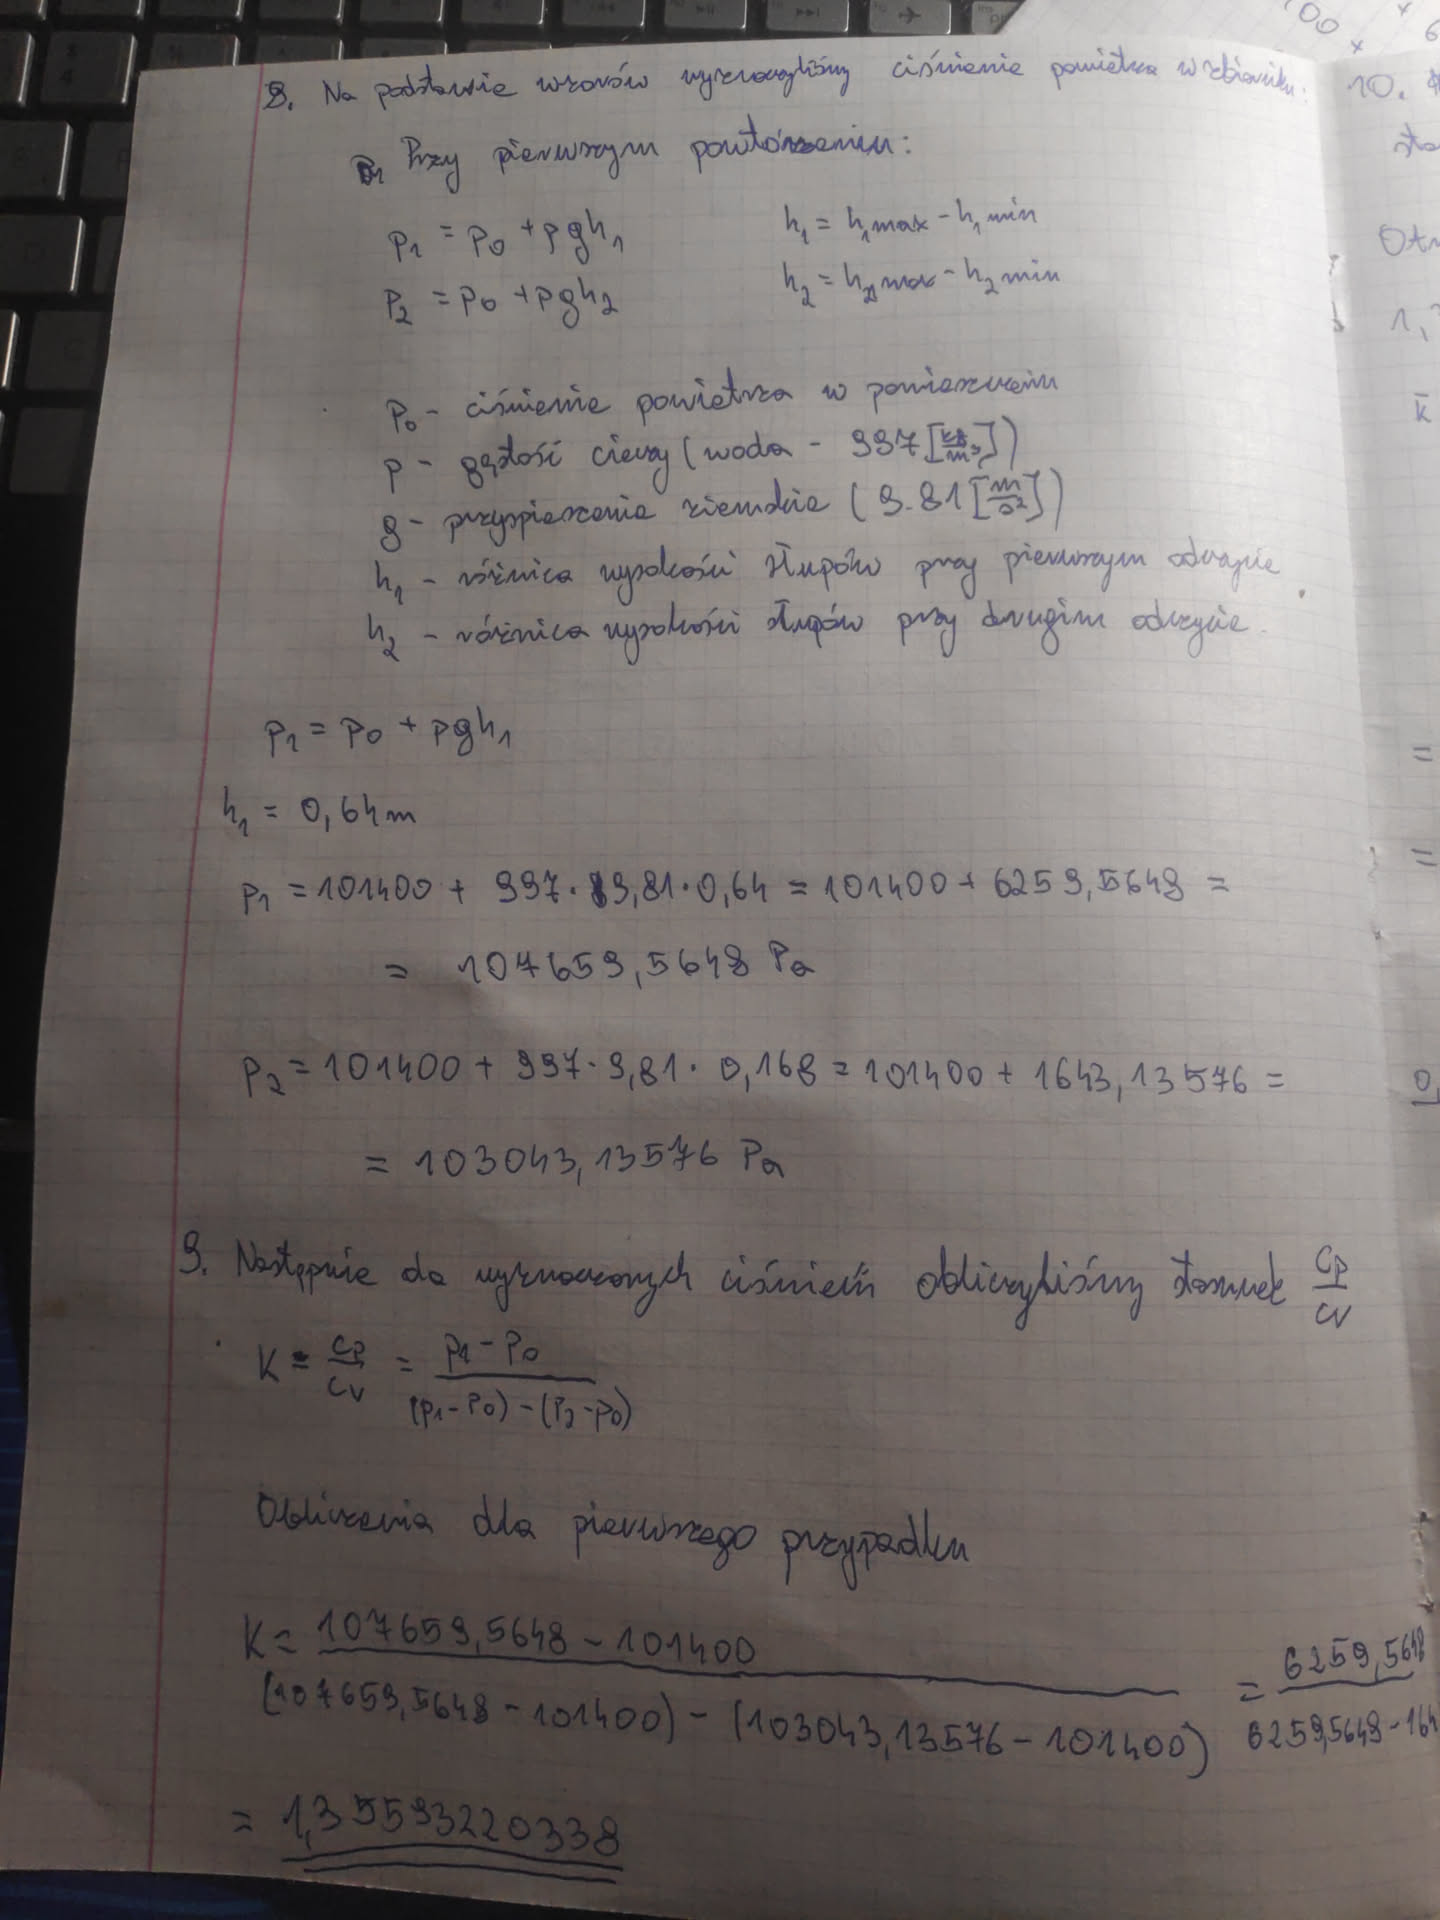 8. Na podstawie wzorów wyznaczyliśmy ciśnienie powietrza w zbiorniku:
Przy pierwszym powtórzeniu:
p₁ = p₀ + pgh₁
h₁ = h₁max - h₁min
p₂ = p₀ + pgh₂
h₂ = h₂max - h₂min
p₀ - ciśnienie powietrza w pomieszczeniu
p - gęstość cieczy (woda - 997 [kg/m³])
g - przyspieszenie ziemskie (9.81 [m/s²])
h₁ - różnica wysokości słupów przy pierwszym odczycie
h₂ - różnica wysokości słupów przy drugim odczycie.
p₁ = p₀ + pgh₁
h₁ = 0,64m
p₁ = 101400 + 997 · 9,81 · 0,64 = 101400 + 6259,5648 =
= 107659,5648 Pa
p₂ = 101400 + 997 · 9,81 · 0,168 = 101400 + 1643,13576 =
= 103043,13576 Pa
9. Następnie do wyznaczonych ciśnień obliczyliśmy stosunek cp/cv
K = cp/cv = (p₁ - p₀)/((p₁ - p₀) - (p₂ - p₀))
Obliczenia dla pierwszego przypadku
K = 107659,5648 - 101400 / (107659,5648 - 101400) - (103043,13576 - 101400) = 6259,5648 / 6259,5648 - 164
= 1,35593220338
10.